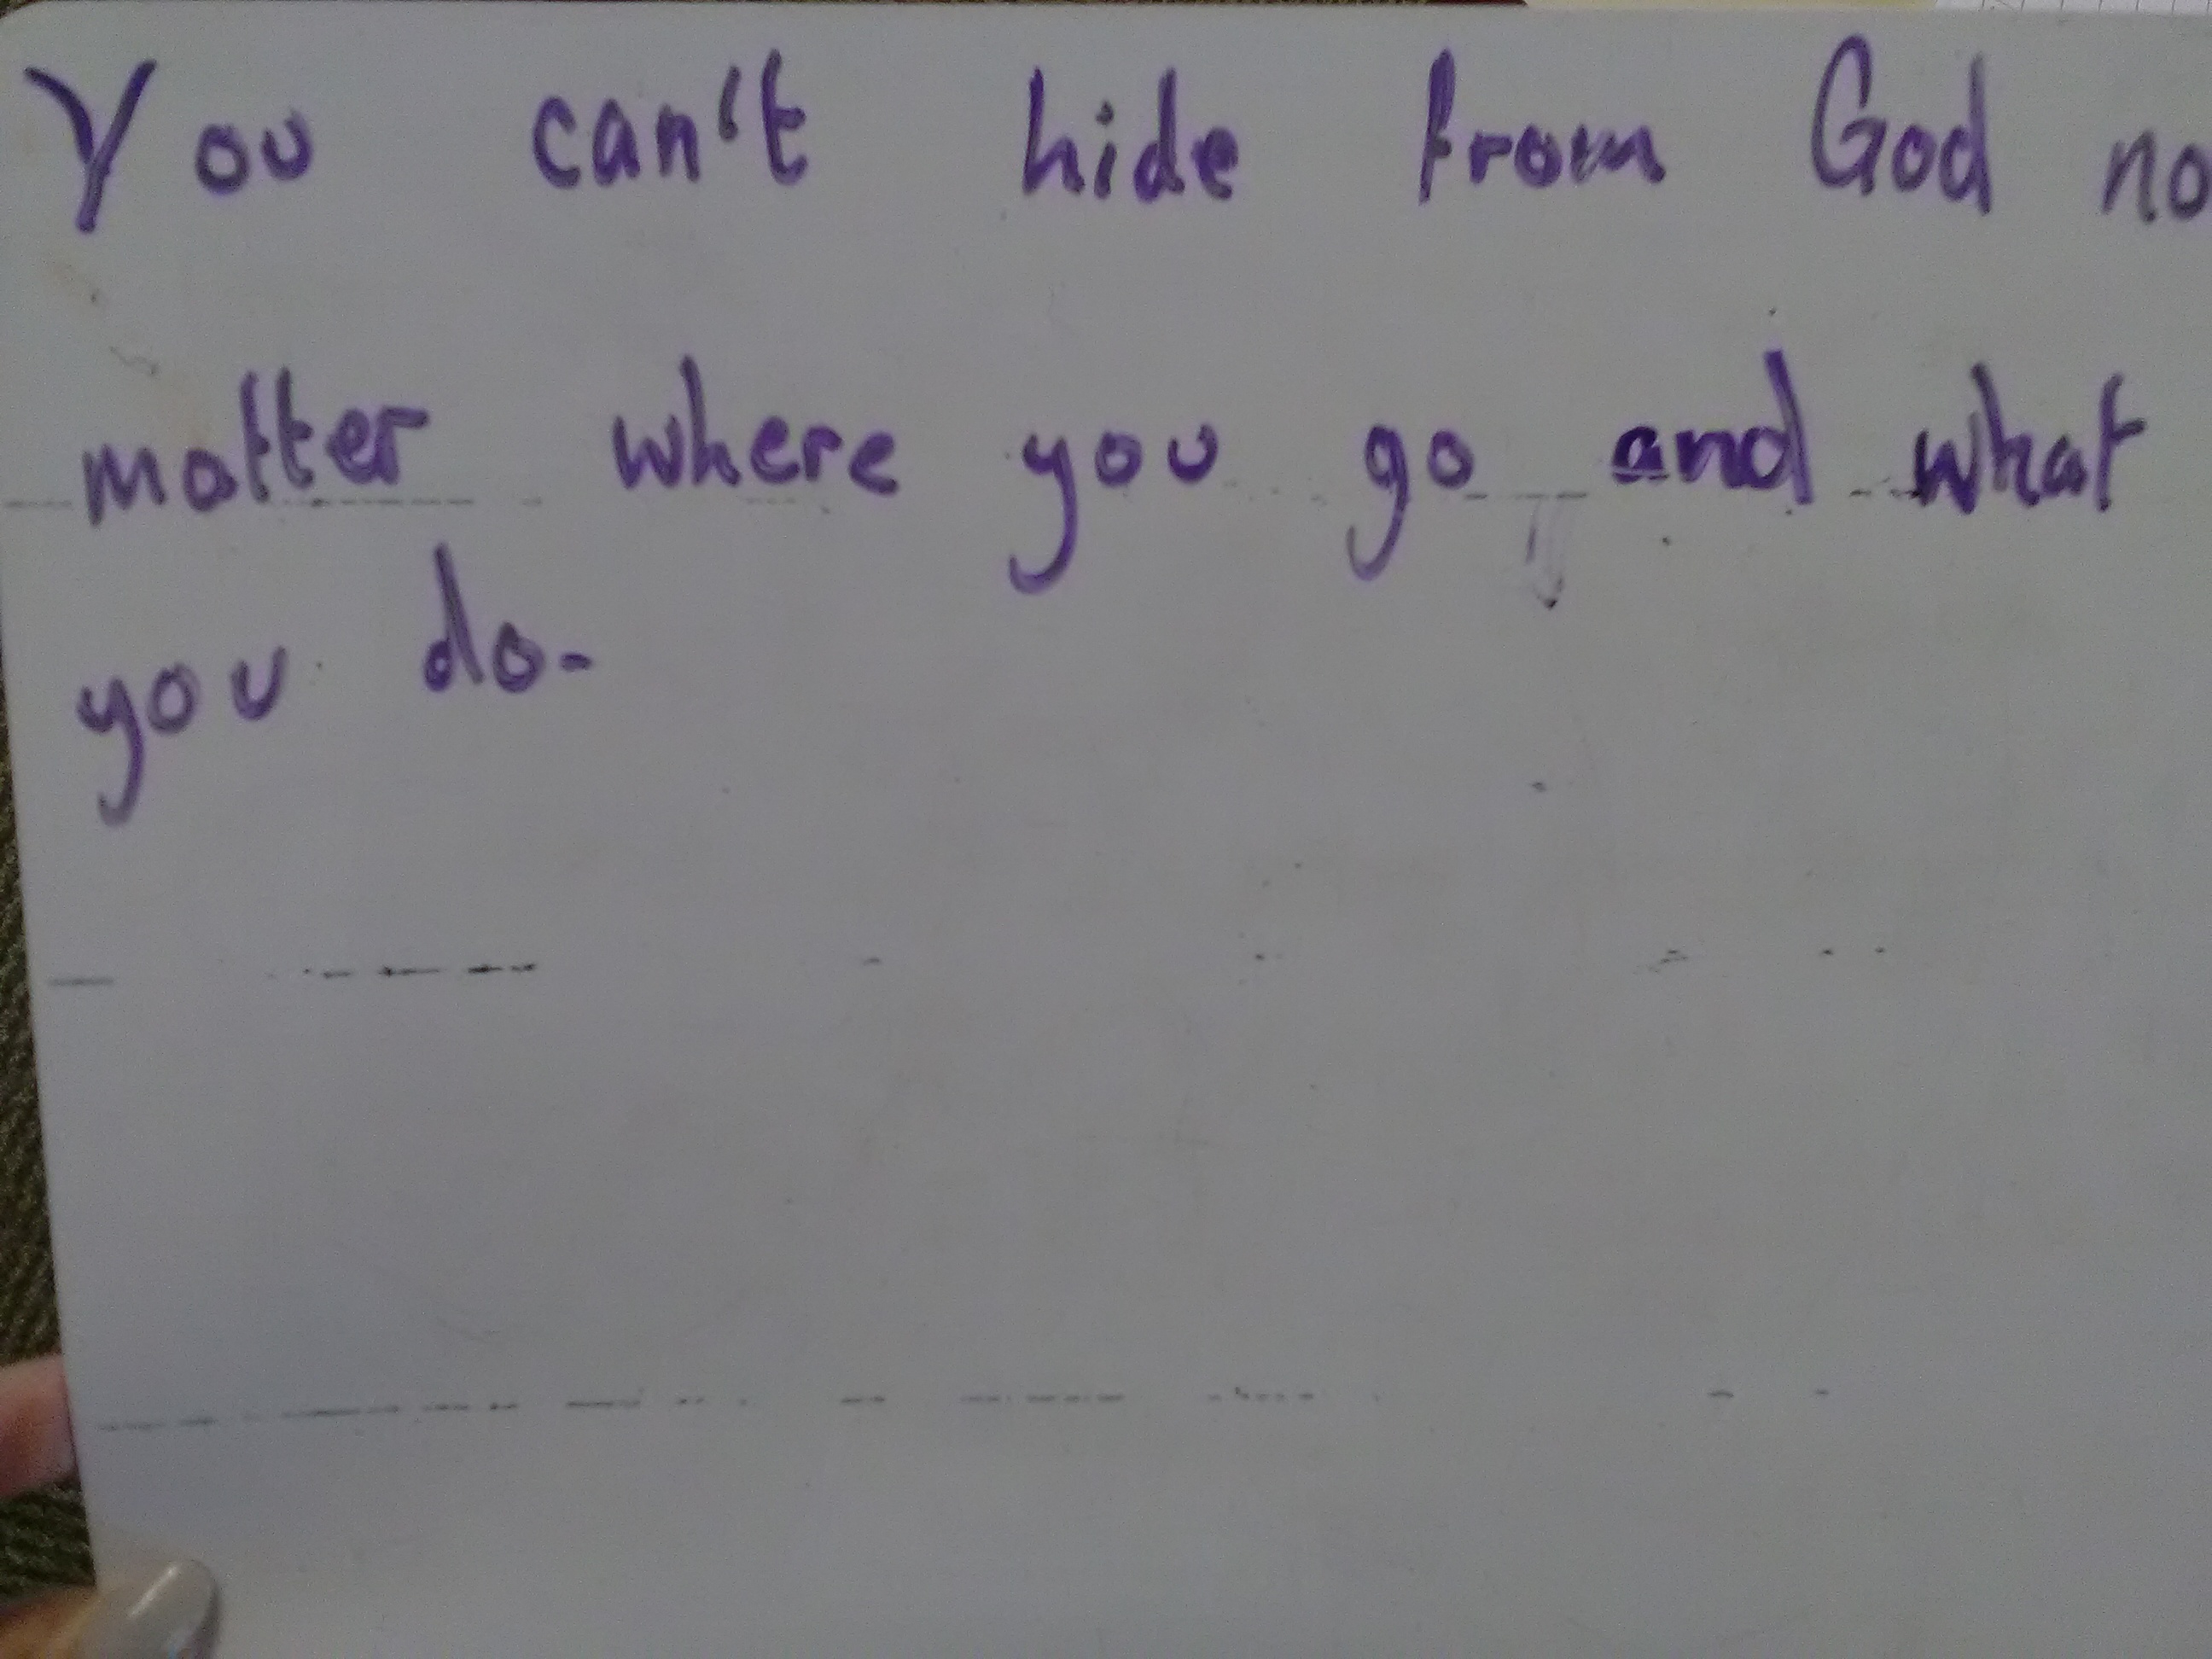 You can't hide from God no
matter where you go and what
you do.